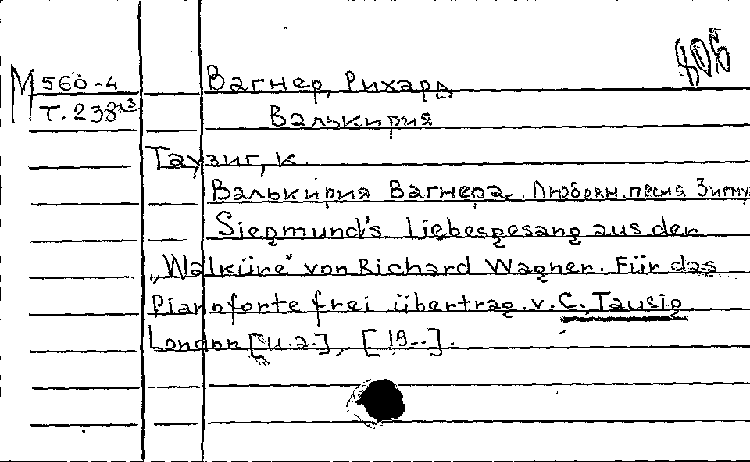 М 560-4
Т. 238
Вагнер, Рихард
Валькирия
Таузиг, К.
Валькирия Вагнера. Любовн. песня Зигму
Siegmund's Liebesgesang aus der
„Walküre" von Richard Wagner. Für das
Pianoforte frei übertrag. v. C. Tausig
London [u.a.], [19--].